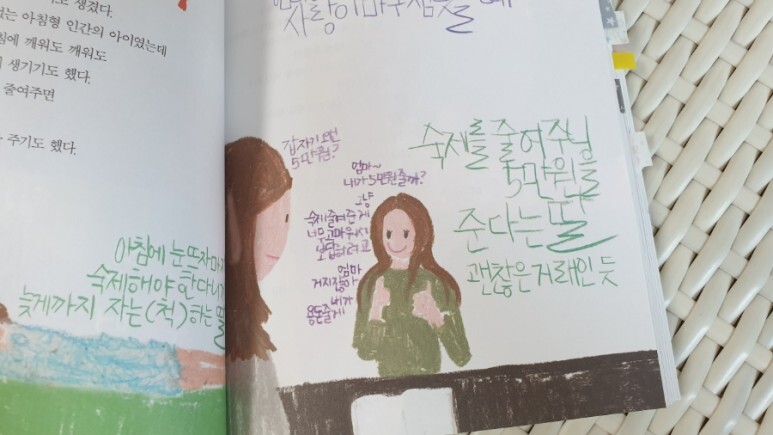 도 생겼다.
는 아침형 인간의 아이였는데
침에 깨워도 깨워도
생기기도 했다.
줄여주면
주기도 했다.
아침에 눈 뜨자마자
숙제해야 한다니
늦게까지 자는(척)하는 딸
사랑이
갑자기 오천
5만원?
엄마~
내가 5만원 줄까?
그냥
숙제 줄여준게
너무 고마워서
보답하려고
엄마
거지잖아
내가
용돈줄게
숙제를 줄여주님
5만원을
준다는 딸
괜찮은 거래인 듯